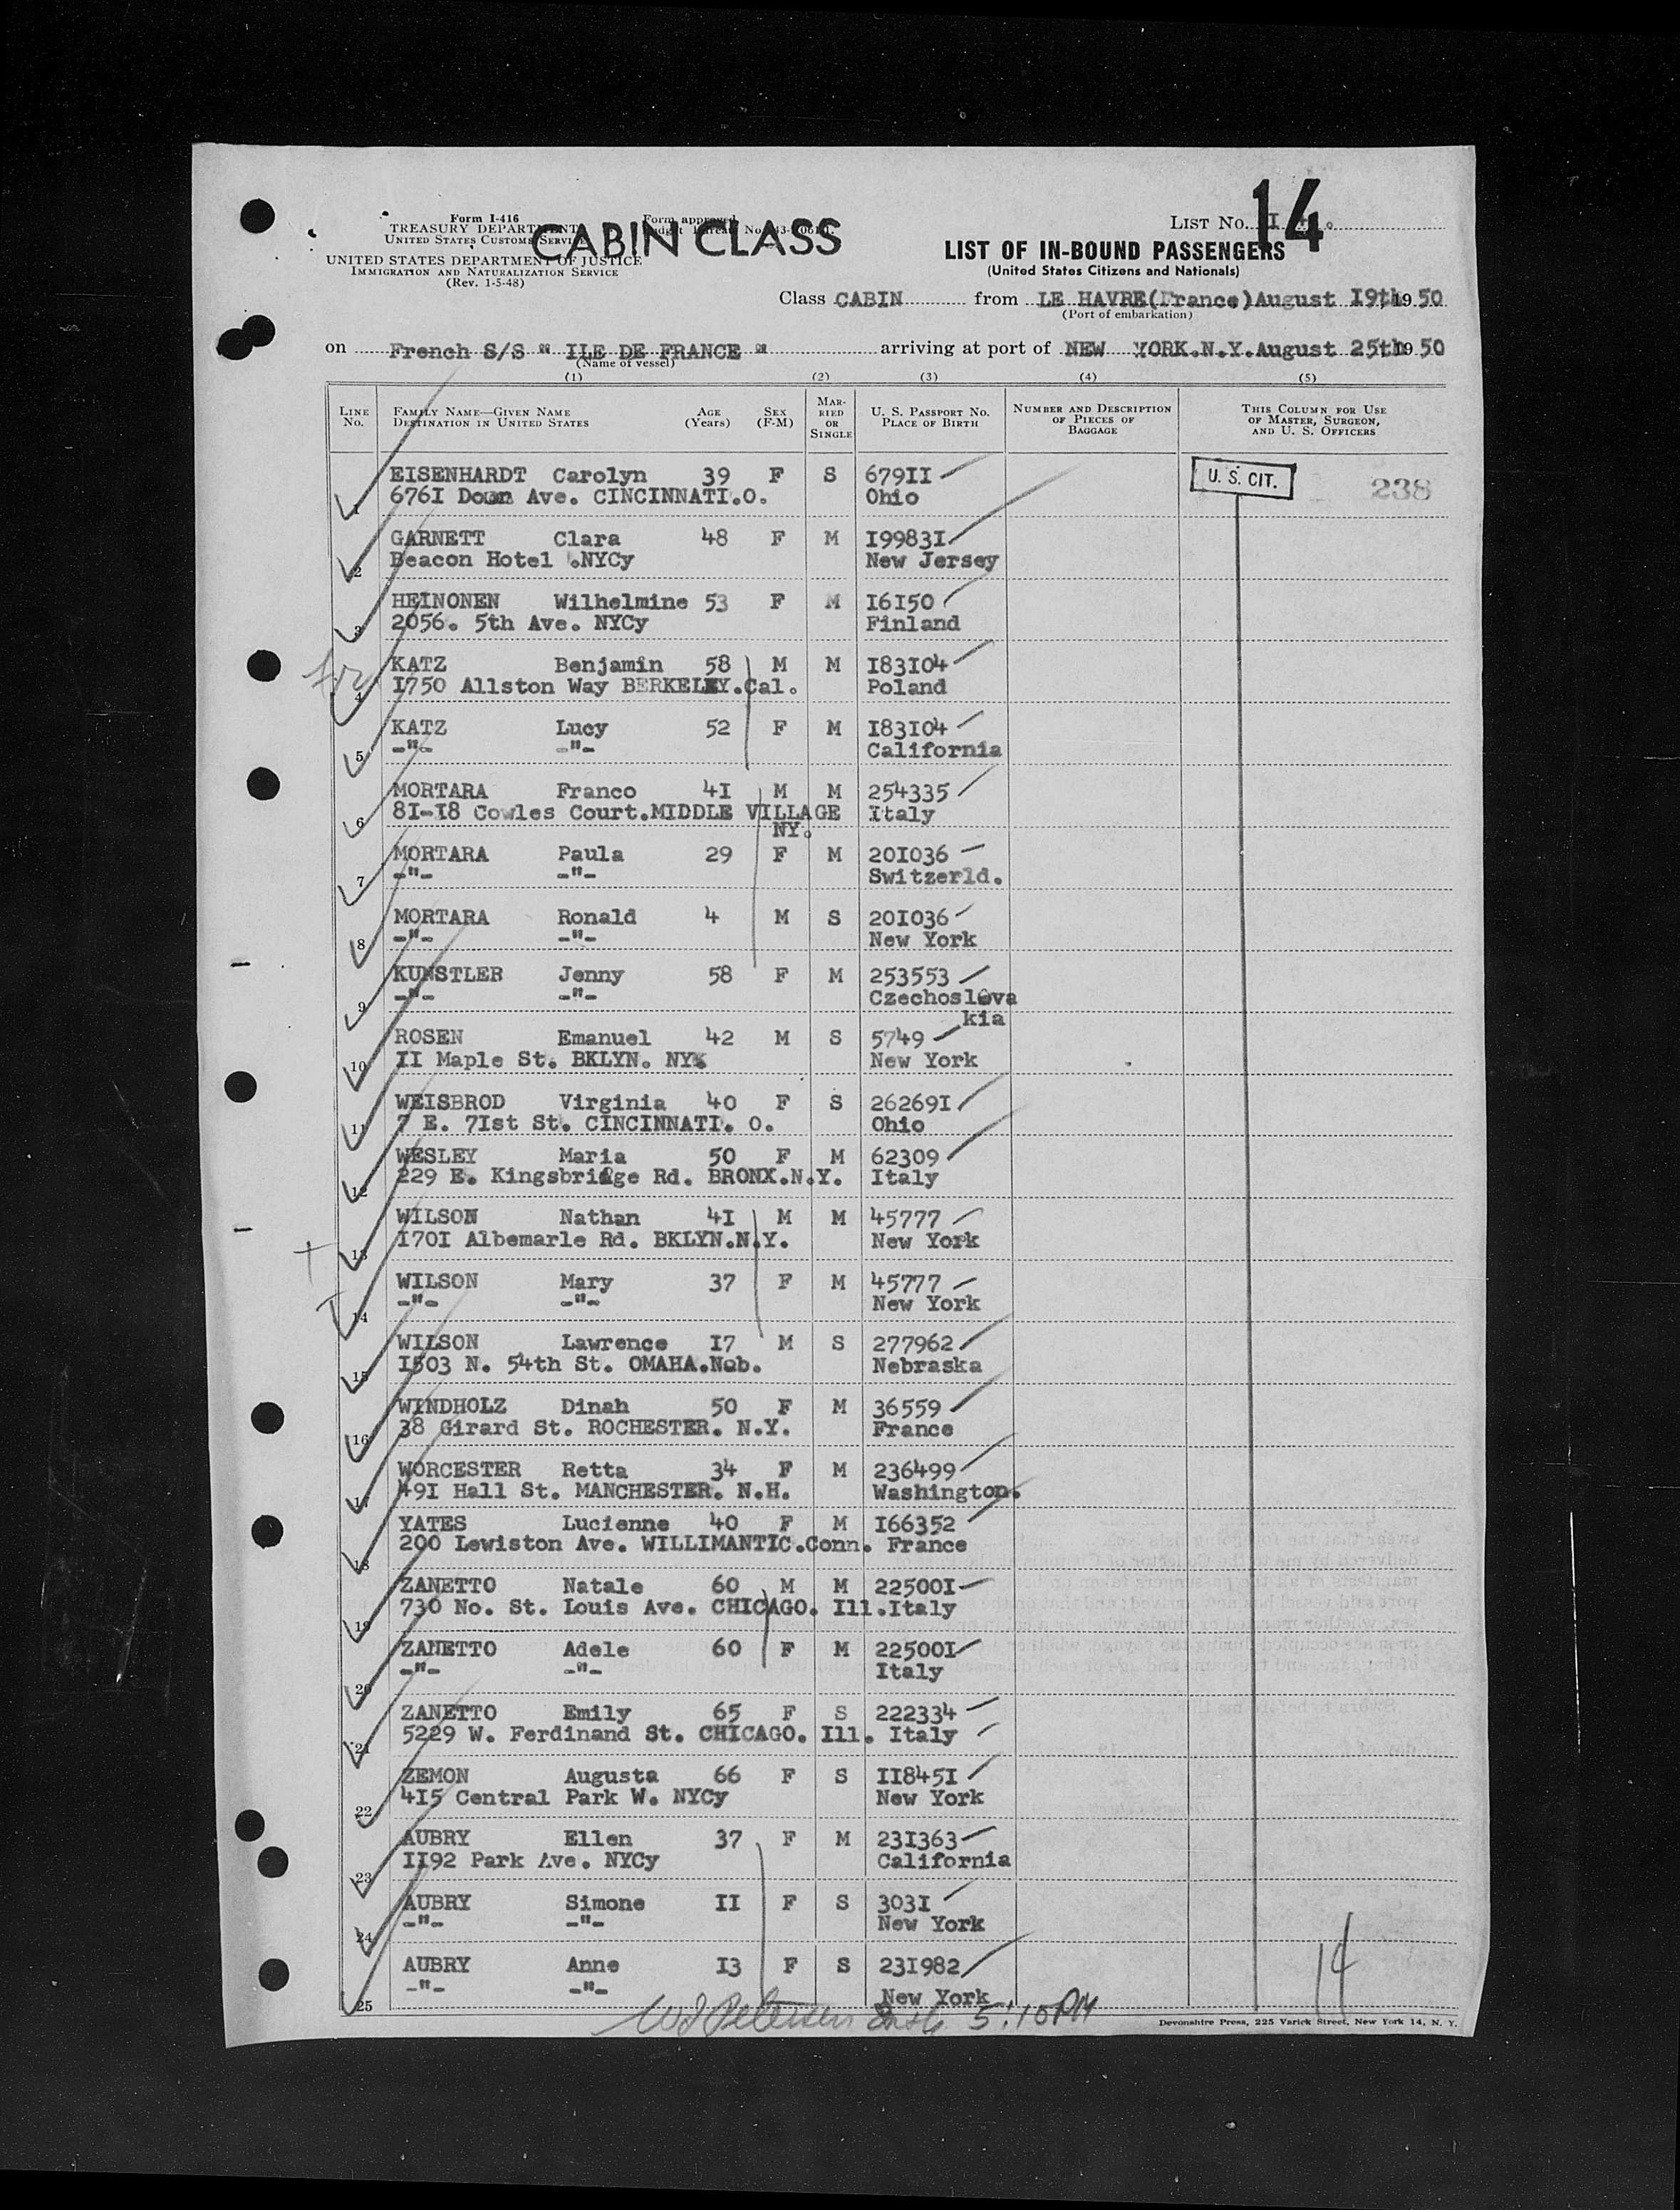 14
Form I-416
TREASURY DEPARTMENT
UNITED STATES CUSTOMS SERVICE
UNITED STATES DEPARTMENT OF JUSTICE
IMMIGRATION AND NATURALIZATION SERVICE
(Rev. 1-5-48)
Form approved
CABIN CLASS
LIST No.
LIST OF IN-BOUND PASSENGERS
(United States Citizens and Nationals)
Class CABIN from LE HAVRE(France)August I9th, 19 50
(Port of embarkation)
on French S/S " ILE DE FRANCE " arriving at port of NEW YORK.N.Y.August 25th 19 50
(Name of vessel)
(1) (2) (3) (4) (5)
LINE No. FAMILY NAME—GIVEN NAME DESTINATION IN UNITED STATES AGE (Years) SEX (F-M) MARRIED OR SINGLE U. S. PASSPORT No. PLACE OF BIRTH NUMBER AND DESCRIPTION OF PIECES OF BAGGAGE THIS COLUMN FOR USE OF MASTER, SURGEON, AND U. S. OFFICERS
EISENHARDT Carolyn 39 F S 679II U. S. CIT. 238
1 676I Ave. CINCINNATI.O. Ohio
GARNETT Clara 48 F M I9983I
2 Beacon Hotel .NYCy New Jersey
HEINONEN Wilhelmine 53 F M I6I50
3 2056. 5th Ave. NYCy Finland
KATZ Benjamin 58 M M I83I04
4 I750 Allston Way BERKELEY.Cal. Poland
KATZ Lucy 52 F M I83I04
5 -"- -"- California
MORTARA Franco 4I M M 254335
6 8I-I8 Cowles Court.MIDDLE VILLAGE Italy
NY.
MORTARA Paula 29 F M 20I036
7 -"- -"- Switzerld.
MORTARA Ronald 4 M S 20I036
8 -"- -"- New York
KUNSTLER Jenny 58 F M 253553
9 -"- -"- Czechoslova
kia
ROSEN Emanuel 42 M S 5749
10 II Maple St. BKLYN. NY. New York
WEISBROD Virginia 40 F S 26269I
11 7 E. 7Ist St. CINCINNATI. O. Ohio
WESLEY Maria 50 F M 62309
12 229 E. Kingsbridge Rd. BRONX.N.Y. Italy
WILSON Nathan 4I M M 45777
13 I70I Albemarle Rd. BKLYN.N.Y. New York
WILSON Mary 37 F M 45777
14 -"- -"- New York
WILSON Lawrence I7 M S 277962
15 I503 N. 54th St. OMAHA.Neb. Nebraska
WINDHOLZ Dinah 50 F M 36559
16 38 Girard St. ROCHESTER. N.Y. France
WORCESTER Retta 34 F M 236499
17 49I Hall St. MANCHESTER. N.H. Washington.
YATES Lucienne 40 F M I66352
18 200 Lewiston Ave. WILLIMANTIC.Conn. France
ZANETTO Natale 60 M M 22500I
19 730 No. St. Louis Ave. CHICAGO. Ill.Italy
ZANETTO Adele 60 F M 22500I
20 -"- -"- Italy
ZANETTO Emily 65 F S 222334
21 5229 W. Ferdinand St. CHICAGO. Ill. Italy
ZEMON Augusta 66 F S II845I
22 4I5 Central Park W. NYCy New York
AUBRY Ellen 37 F M 23I363
23 II92 Park Ave. NYCy California
AUBRY Simone II F S 303I
24 -"- -"- New York
AUBRY Anne I3 F S 23I982
25 -"- -"- New York
14
5:10 PM
Devonshire Press, 225 Varick Street, New York 14, N. Y.